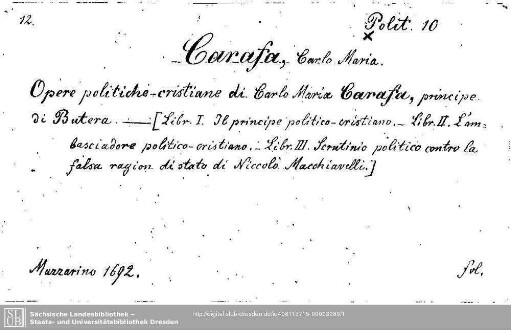 12.
Polit. 10
Carafa, Carlo Maria.
Opere politiche-cristiane di Carlo Maria Carafa, principe
di Butera. — [Libr. I. Il principe politico-cristiano. — Libr. II. L'am-
basciadore politico-cristiano. — Libr. III. Scrutinio politico contro la
falsa ragion di stato di Niccolò Macchiavelli.]
Mazzarino 1692.
fol.
Sächsische Landesbibliothek –
Staats- und Universitätsbibliothek Dresden